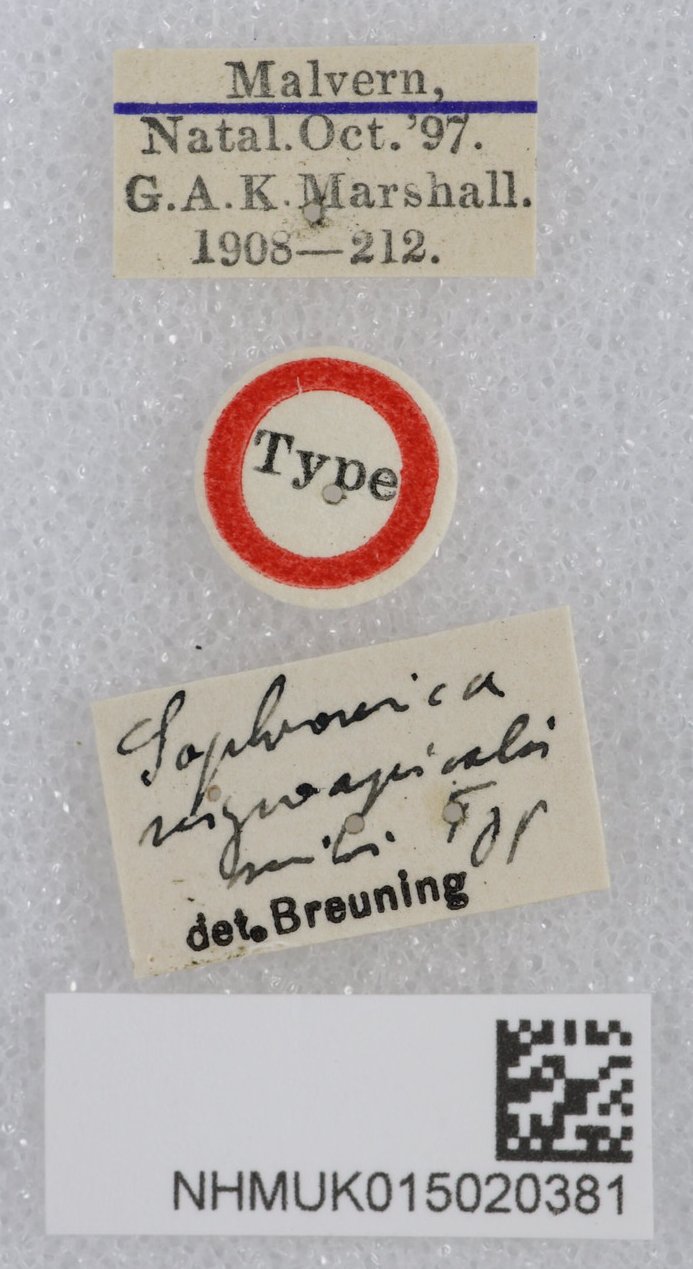 Malvern,
Natal. Oct. '97.
G.A.K. Marshall.
1908—212.
Type
Sophronica
nigroapicalis
mihi Typ
det. Breuning
NHMUK015020381